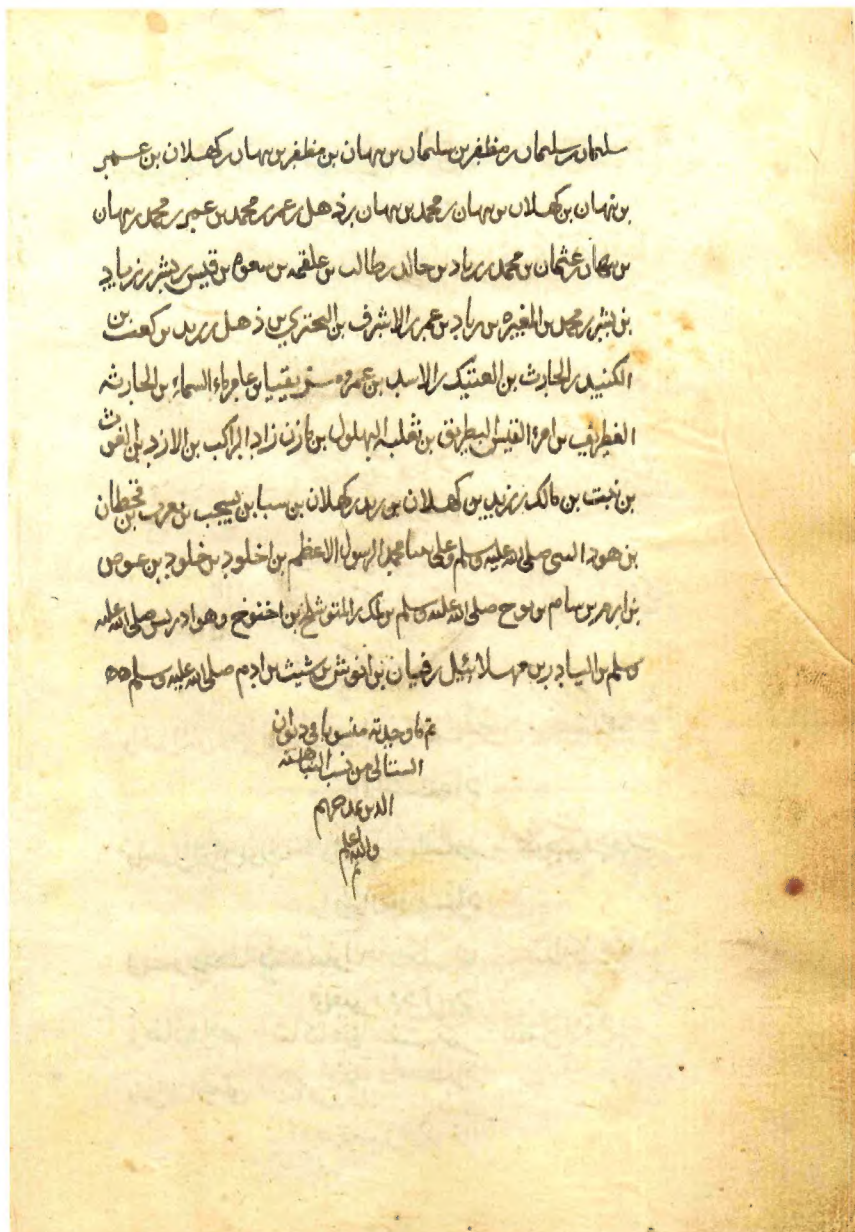 سليمان بن سليمان بن مظفر بن سليمان بن نبهان بن مظفر بن نبهان بن كهلان بن عمر
بن نبهان بن كهلان بن نبهان بن محمد بن نبهان بن ذهل بن عمر بن محمد بن عمر بن محمد بن نبهان
بن نبهان بن عثمان بن محمد بن زياد بن خالد بن طالب بن علقمه بن معوه بن قيس بن بشر بن زياد
بن بشير بن محمد بن المغيره بن زياد بن عمر بن الاشرف بن البحتري بن ذهل بن زيد بن كعب بن
الكنيد بن الحارث بن العتيك بن الاسد بن عمرو مزيقيا بن عامر ماء السماء بن الحارثه
الغطريف بن امرء القيس البطريق بن ثعلبه البهلول بن مازن زاد الراكب بن الازد بن الغوث
بن نبت بن مالك بن زيد بن كهلان بن زيد بن كهلان بن سبا بن يشجب بن يعرب بن قحطان
بن هود النبي صلى الله عليه وسلم وعلى نبينا محمد الرسول الاعظم بن اخلود بن خلود بن عوص
بن ارم بن سام بن نوح صلى الله عليه وسلم بن لمك بن المتوشلخ بن اخنوخ وهو ادريس صلى الله عليه
وسلم بن اليادر بن مهلائيل بن قيان بن انوش بن شيث بن ادم صلى الله عليه وسلم
تم ما وجدته منسوبا في ديوان
الستالي من نسب النباهنه
الدين
والله اعلم
تم